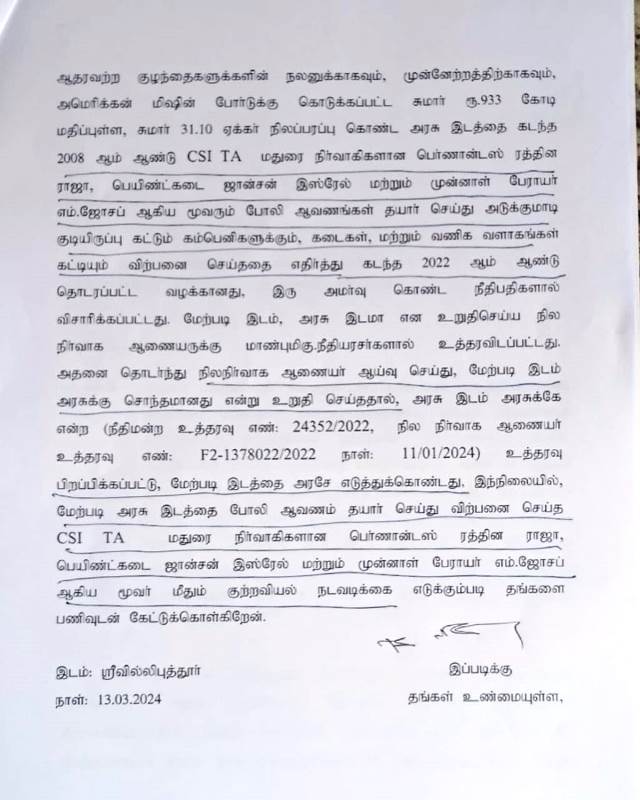 ஆதரவற்ற குழந்தைகளுக்களின் நலனுக்காகவும், முன்னேற்றத்திற்காகவும்,
அமெரிக்கன் மிஷின் போர்டுக்கு கொடுக்கப்பட்ட சுமார் ரூ.933 கோடி
மதிப்புள்ள, சுமார் 31.10 ஏக்கர் நிலப்பரப்பு கொண்ட அரசு இடத்தை கடந்த
2008 ஆம் ஆண்டு CSI TA மதுரை நிர்வாகிகளான பெர்ணான்டஸ் ரத்தின
ராஜா, பெயிண்ட்கடை ஜான்சன் இஸ்ரேல் மற்றும் முன்னாள் பேராயர்
எம்.ஜோசப் ஆகிய மூவரும் போலி ஆவணங்கள் தயார் செய்து அடுக்குமாடி
குடியிருப்பு கட்டும் கம்பெனிகளுக்கும், கடைகள், மற்றும் வணிக வளாகங்கள்
கட்டியும் விற்பனை செய்ததை எதிர்த்து கடந்த 2022 ஆம் ஆண்டு
தொடரப்பட்ட வழக்கானது, இரு அமர்வு கொண்ட நீதிபதிகளால்
விசாரிக்கப்பட்டது. மேற்படி இடம், அரசு இடமா என உறுதிசெய்ய நில
நிர்வாக ஆணையருக்கு மாண்புமிகு.நீதியரசர்களால் உத்தரவிடப்பட்டது.
அதனை தொடர்ந்து நிலநிர்வாக ஆணையர் ஆய்வு செய்து, மேற்படி இடம்
அரசுக்கு சொந்தமானது என்று உறுதி செய்ததால், அரசு இடம் அரசுக்கே
என்ற (நீதிமன்ற உத்தரவு எண்: 24352/2022, நில நிர்வாக ஆணையர்
உத்தரவு எண்: F2-1378022/2022 நாள்: 11/01/2024) உத்தரவு
பிறப்பிக்கப்பட்டு, மேற்படி இடத்தை அரசே எடுத்துக்கொண்டது. இந்நிலையில்,
மேற்படி அரசு இடத்தை போலி ஆவணம் தயார் செய்து விற்பனை செய்த
CSI TA மதுரை நிர்வாகிகளான பெர்ணான்டஸ் ரத்தின ராஜா,
பெயிண்ட்கடை ஜான்சன் இஸ்ரேல் மற்றும் முன்னாள் பேராயர் எம்.ஜோசப்
ஆகிய மூவர் மீதும் குற்றவியல் நடவடிக்கை எடுக்கும்படி தங்களை
பணிவுடன் கேட்டுக்கொள்கிறேன்.
இடம்: ஸ்ரீவில்லிபுத்தூர் இப்படிக்கு
நாள்: 13.03.2024 தங்கள் உண்மையுள்ள,